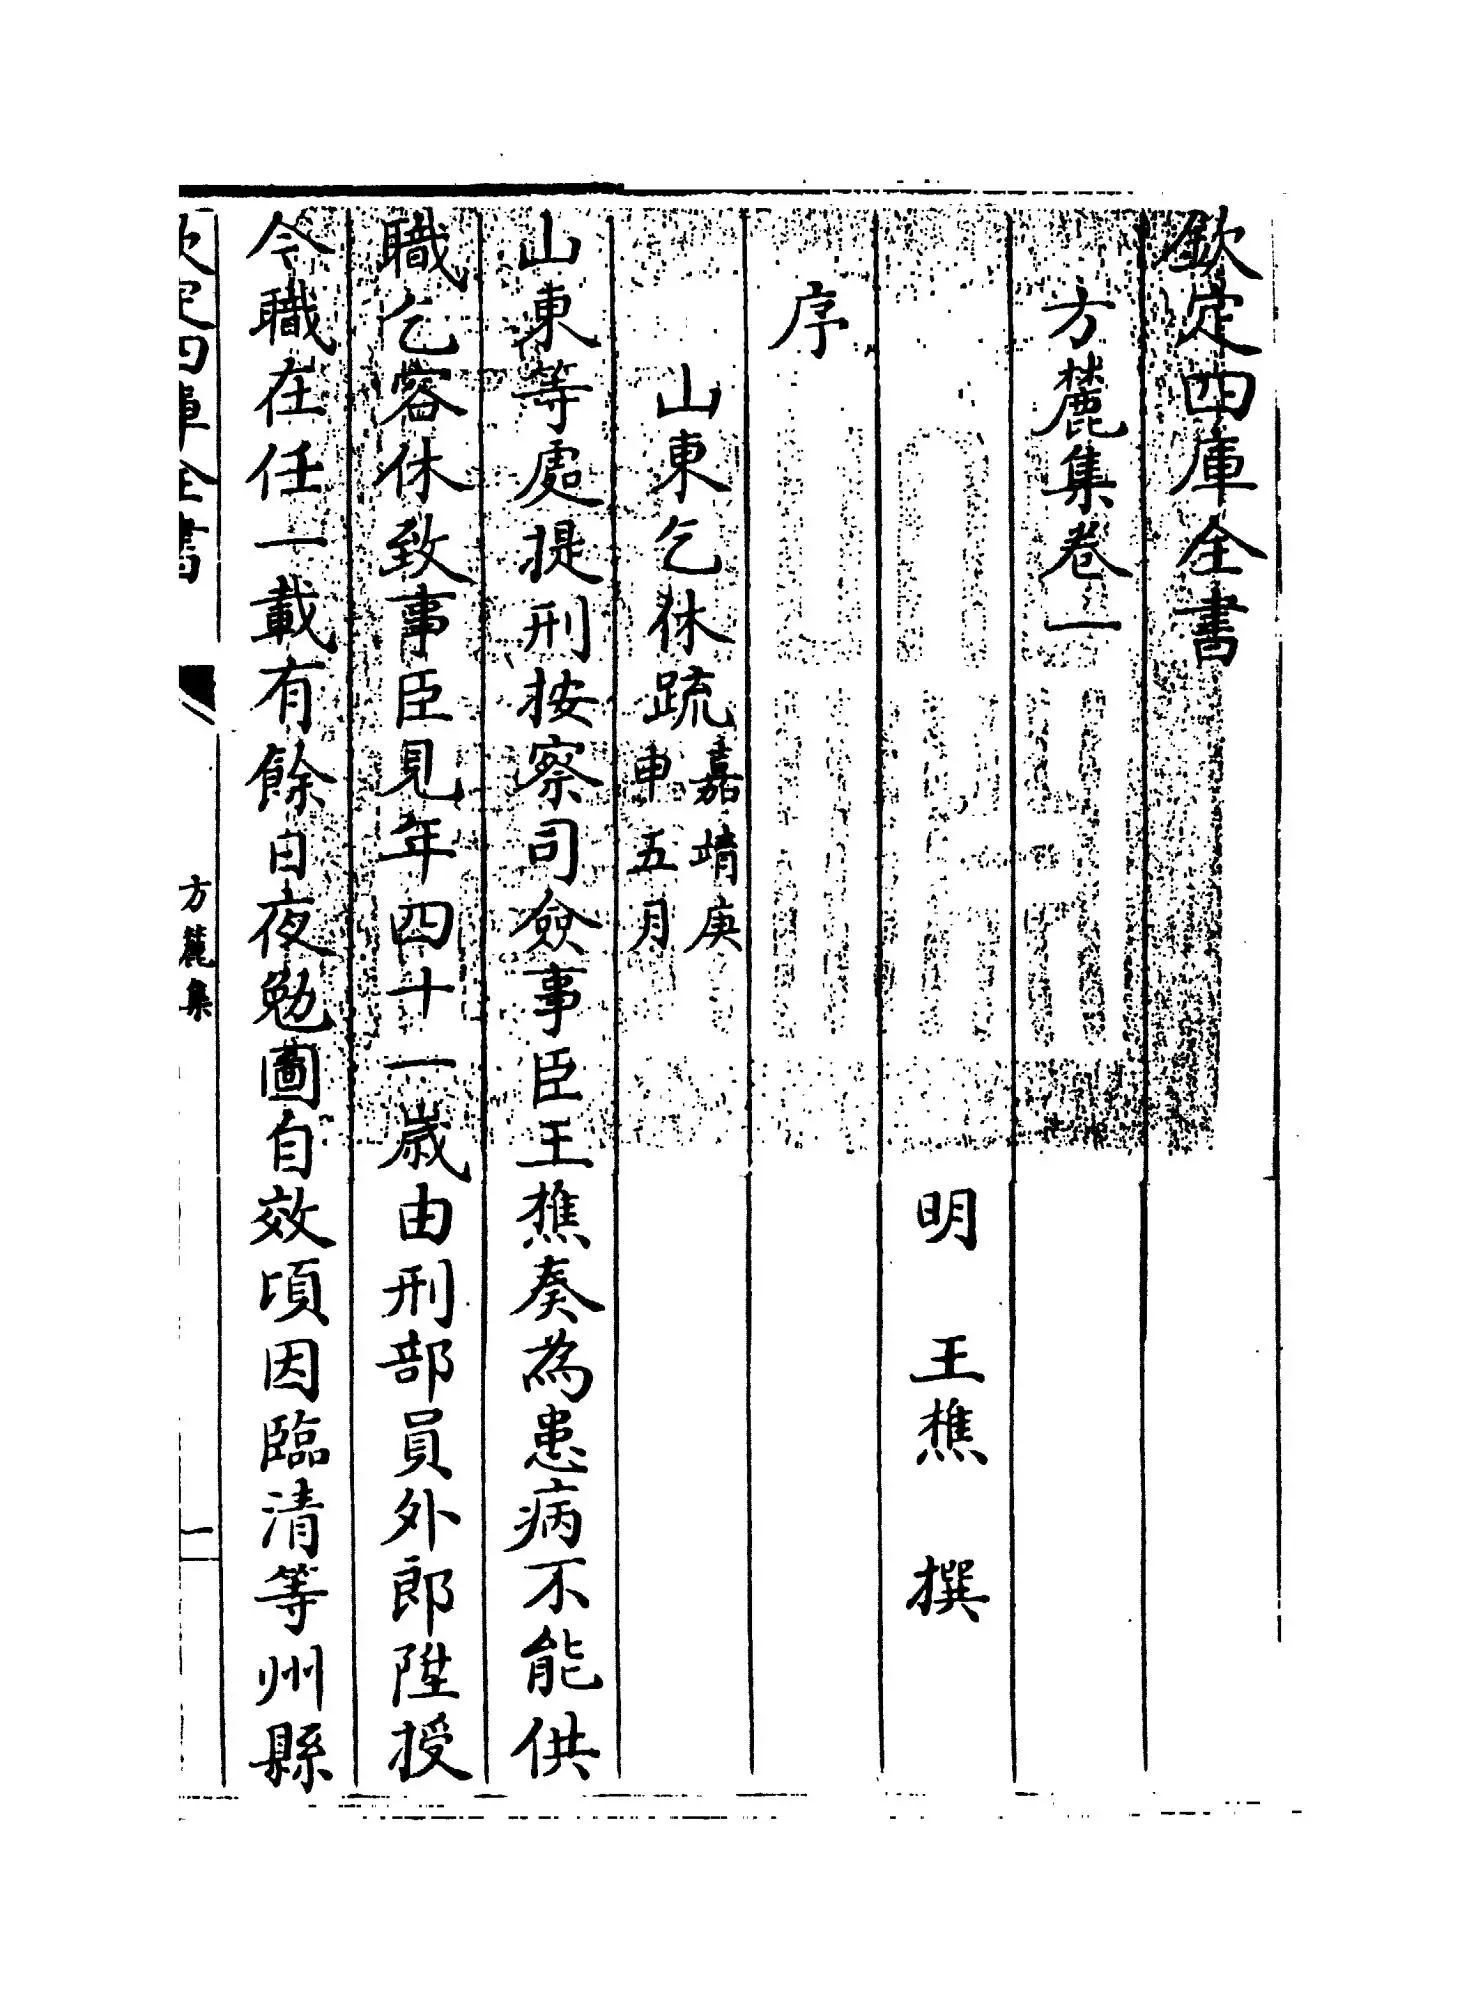 欽定四庫全書
方麓集卷一
明 王樵 撰
序
山東乞休疏嘉靖庚申五月
山東等處提刑按察司僉事臣王樵奏為患病不能供
職乞容休致事臣見年四十一歲由刑部員外郎陞授
今職在任一載有餘日夜勉圖自效頃因臨清等州縣
欽定四庫全書
方麓集
一